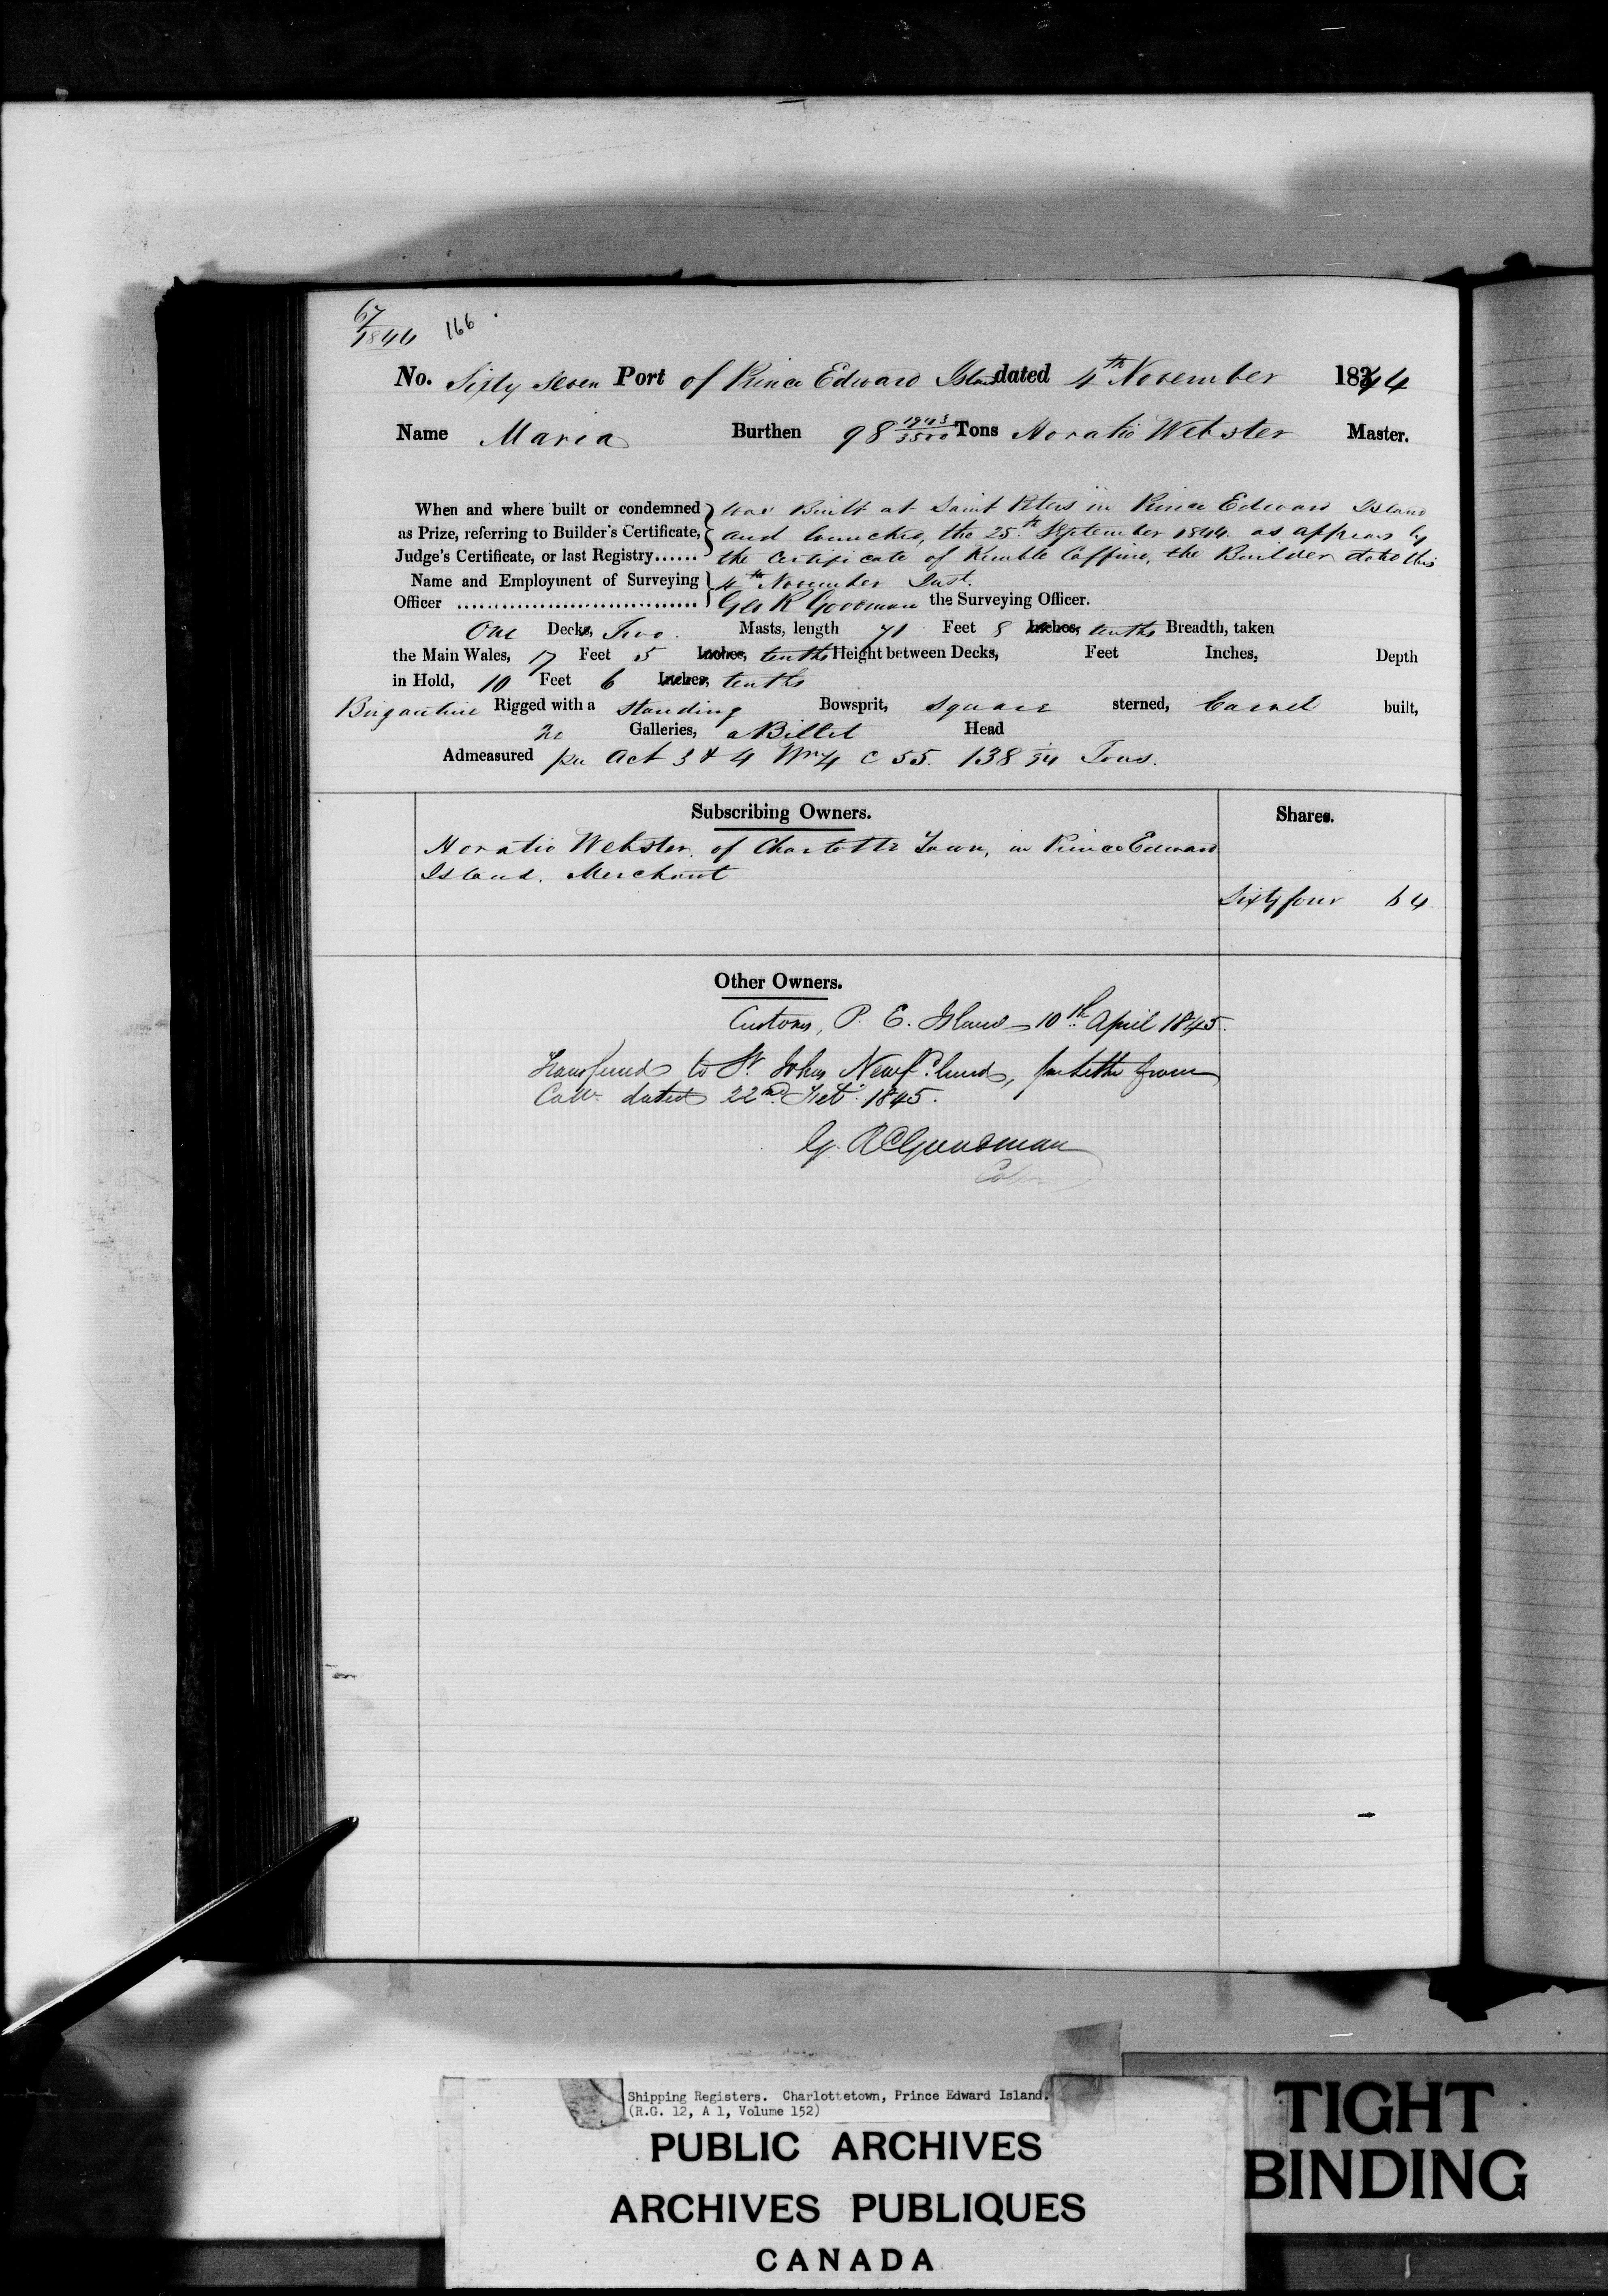 67
1844 166
No. Sixty Seven Port of Prince Edward Island dated 4th November 1844
Name Maria Burthen 98 1943/3500 Tons Horatio Webster Master.
When and where built or condemned was Built at Saint Peters in Prince Edward Island
as Prize, referring to Builder's Certificate, and launched, the 25th September 1844. as appears by
Judge's Certificate, or last Registry...... the Certificate of Kimble Coffin, the Builder dated this
Name and Employment of Surveying 4th November Inst.
Officer ................................ Geo R Goodman the Surveying Officer.
One Decks, Two. Masts, length 71 Feet 8 Inches, tenths Breadth, taken
the Main Wales, 17 Feet 5 Inches, tenths Height between Decks, Feet Inches, Depth
in Hold, 10 Feet 6 Inches, tenths
Brigantine Rigged with a standing Bowsprit, square sterned, Carvel built,
no Galleries, a Billet Head
Admeasured per Act 3 & 4 Wm 4 C 55. 138 /94 Tons.
Subscribing Owners. Shares.
Horatio Webster, of Charlotte Town, in Prince Edward
Island, Merchant
Sixty four 64
Other Owners.
Customs, P. E. Island 10th April 1845.
Transferred to St. Johns Newfdland, per letter from
Collr dated 22nd Feb 1845.
G. R Goodman
Collr
Shipping Registers. Charlottetown, Prince Edward Island.
(R.G. 12, A 1, Volume 152)
PUBLIC ARCHIVES
ARCHIVES PUBLIQUES
CANADA
TIGHT
BINDING